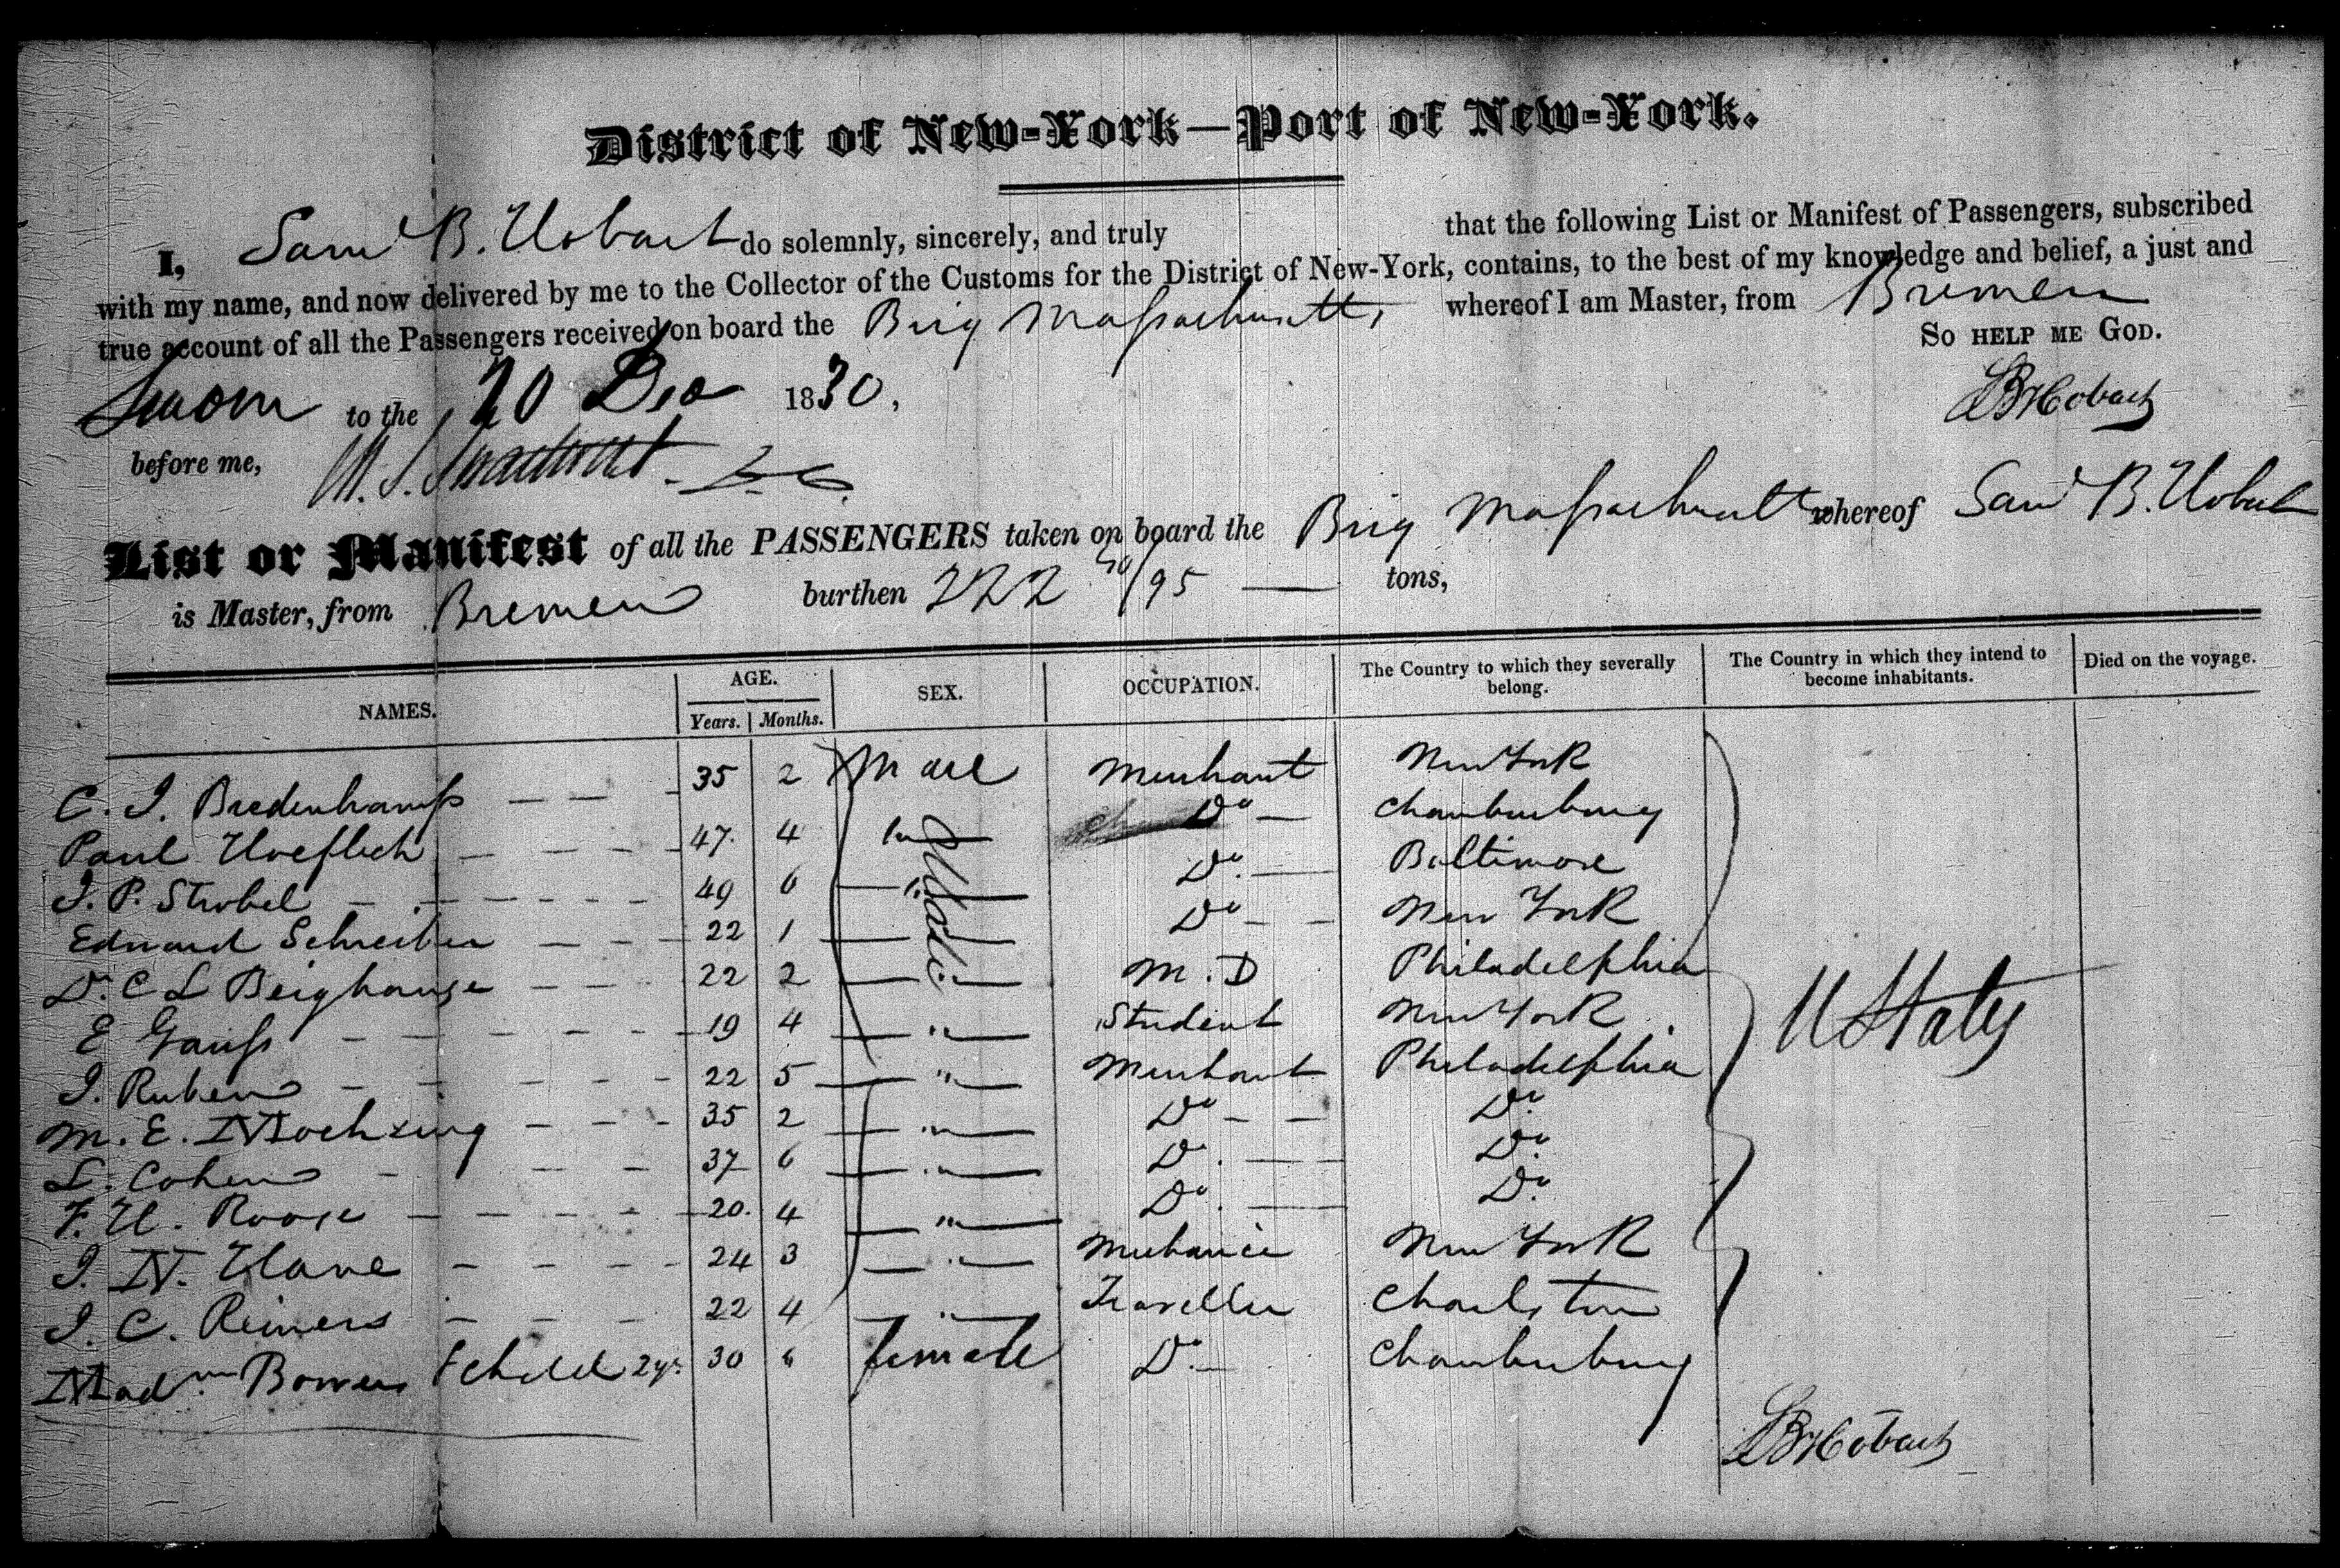 District of New-York—Port of New-York.
I, Saml B. Hobart do solemnly, sincerely, and truly that the following List or Manifest of Passengers, subscribed
with my name, and now delivered by me to the Collector of the Customs for the District of New-York, contains, to the best of my knowledge and belief, a just and
true account of all the Passengers received on board the Brig Massachusetts whereof I am Master, from Bremen
So help me God.
Sworn to the 20 Dec 1830,
SB Hobart
before me,
List or Manifest of all the PASSENGERS taken on board the Brig Massachusetts whereof Saml B. Hobart
is Master, from Bremen burthen 222 /95 — tons,
NAMES. AGE. Years. Months. SEX. OCCUPATION. The Country to which they severally belong. The Country in which they intend to become inhabitants. Died on the voyage.
C. J. Bredenkamp — — 35 2 Male Merchant New York
Paul Hoeflich — — — 47. 4 " Do — Chambersburg
J. P. Strobel — — — 49 6 " Do. — Baltimore
Edward Schreiber — — — 22 1 Do — — New York
Dr. C L Beighause — — — 22 2 M. D Philadelphia
E Gauss — — — 19 4 " Student New York
J. Ruben — — — 22 5 " Merchant Philadelphia
M. E. Mochring — — — 35 2 " Do — — Do.
L. Cohen — — — 37 6 " Do. — Do.
F. H. Roose — — — 20. 4 " Do. — Do.
J. N. Hane — — — 24 3 " Mechanic New York
J. C. Reiners — — — 22 4 " Traveller Charlston
Madm Bowers & child 2 yr. 30 6 female Do. — Chambersburg
Male
U States
SB Hobart